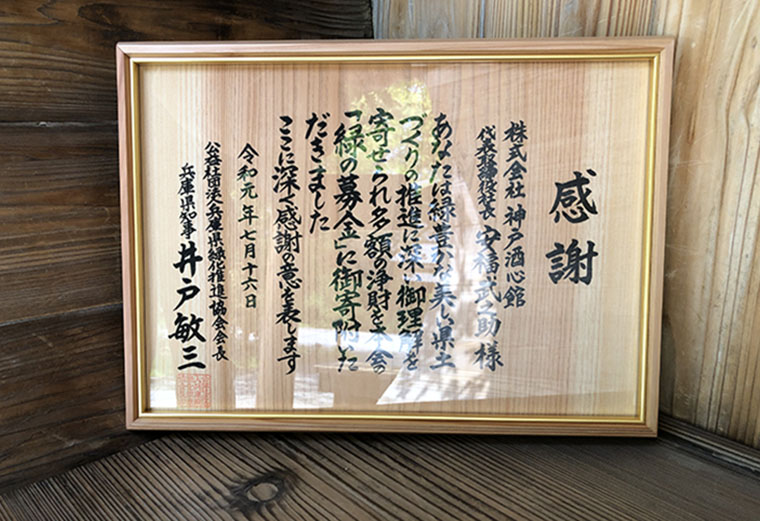 感謝
株式会社 神戸酒心館
代表取締役社長 安福武之助 様
あなたは緑豊かな美しい県土
づくりの推進に深い御理解を
寄せられ多額の浄財を本会の
「緑の募金」に御寄附いた
だきました
ここに深く感謝の意を表します
令和元年七月十六日
公益社団法人兵庫県緑化推進協会会長
兵庫県知事 井戸敏三